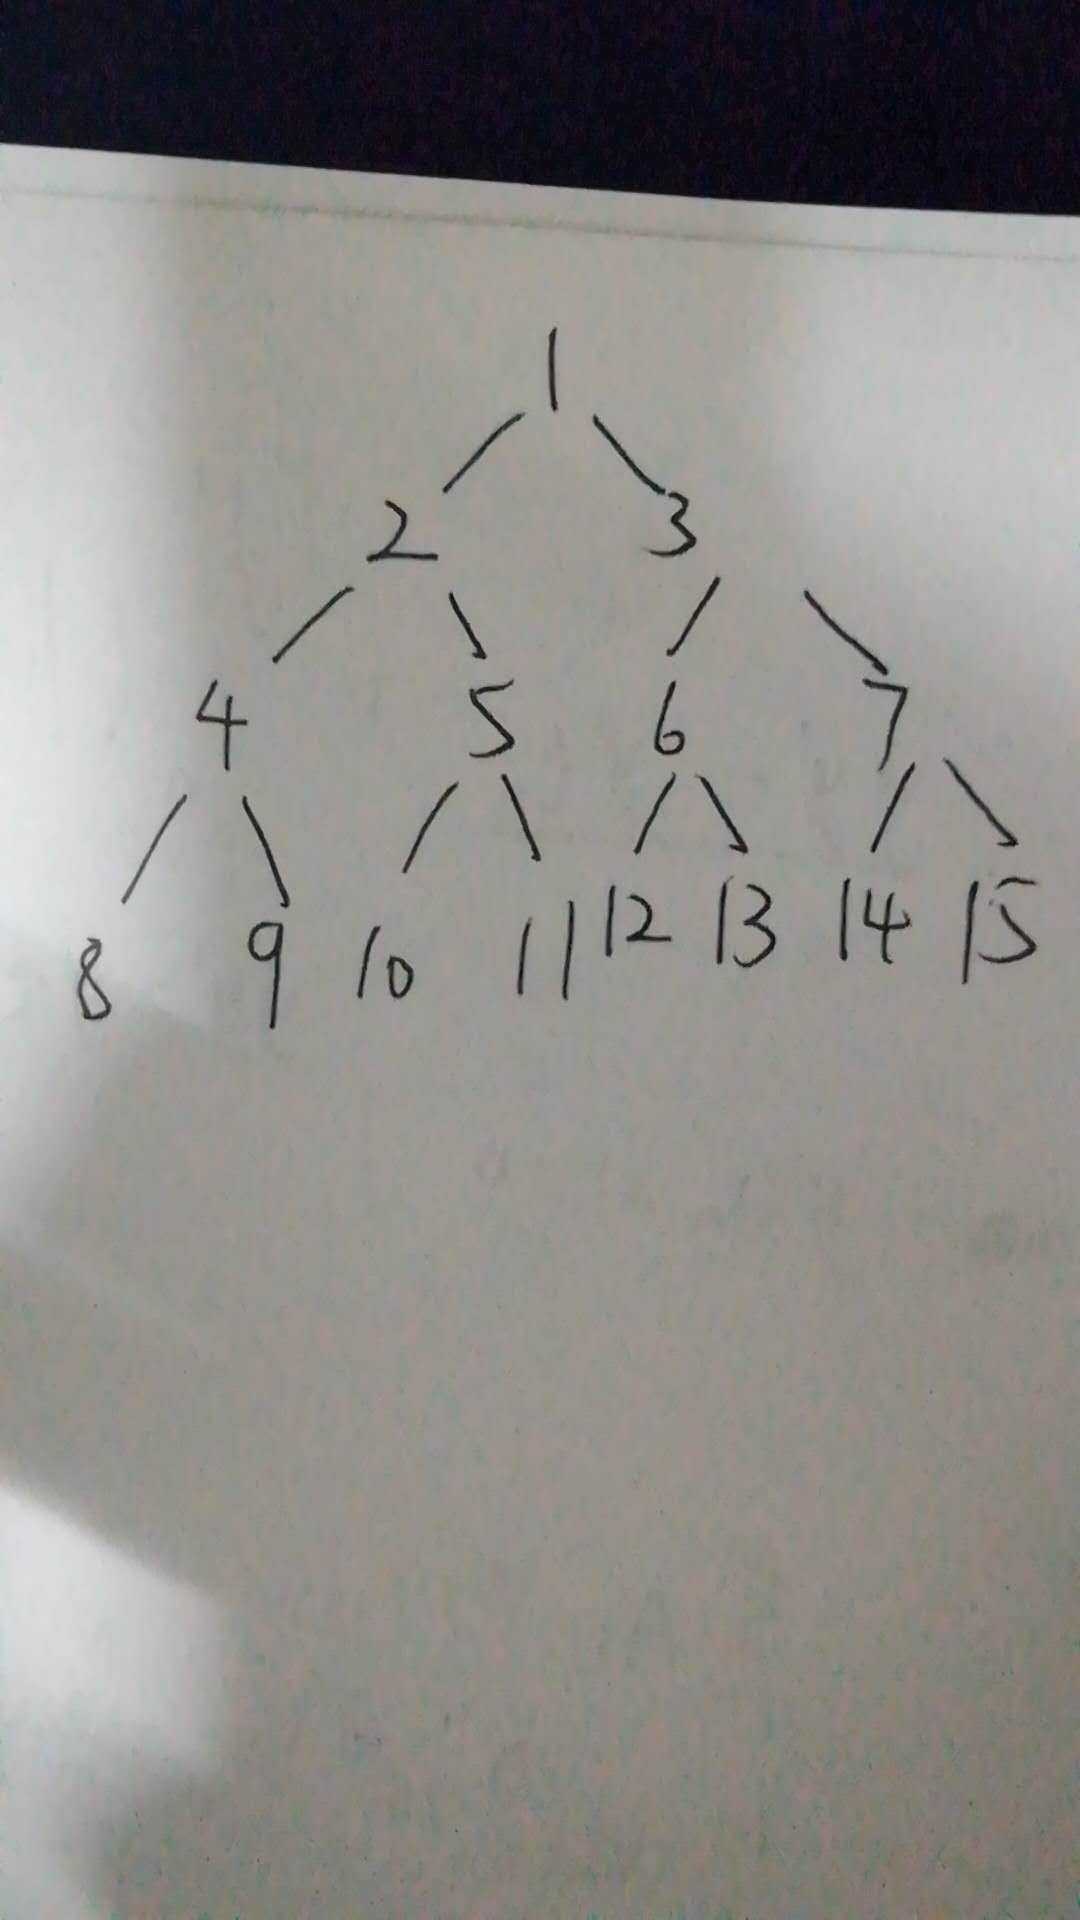 1
2 3
4 5 6 7
8 9 10 11 12 13 14 15